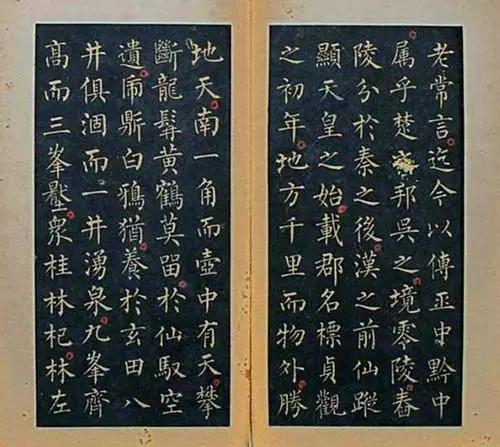 老常言迄今以傳巫中黔中
属乎楚邦吳之境零陵舂
陵分於秦之後漢之前仙蹤
顯天皇之始載郡名標貞觀
之初年地方千里而物外勝
地天南一角而壺中有天攀
斷龍髯黃鶴莫畱於仙馭空
遺虎鼎白鴉猶養於玄田八
井俱涸而一井湧泉九峯齊
髙而三峯壓衆桂林杞林左